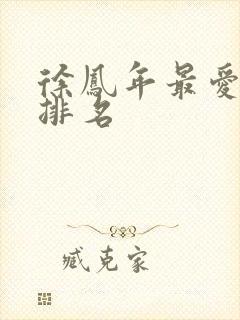 徐鳳年最愛
排名
臧克家